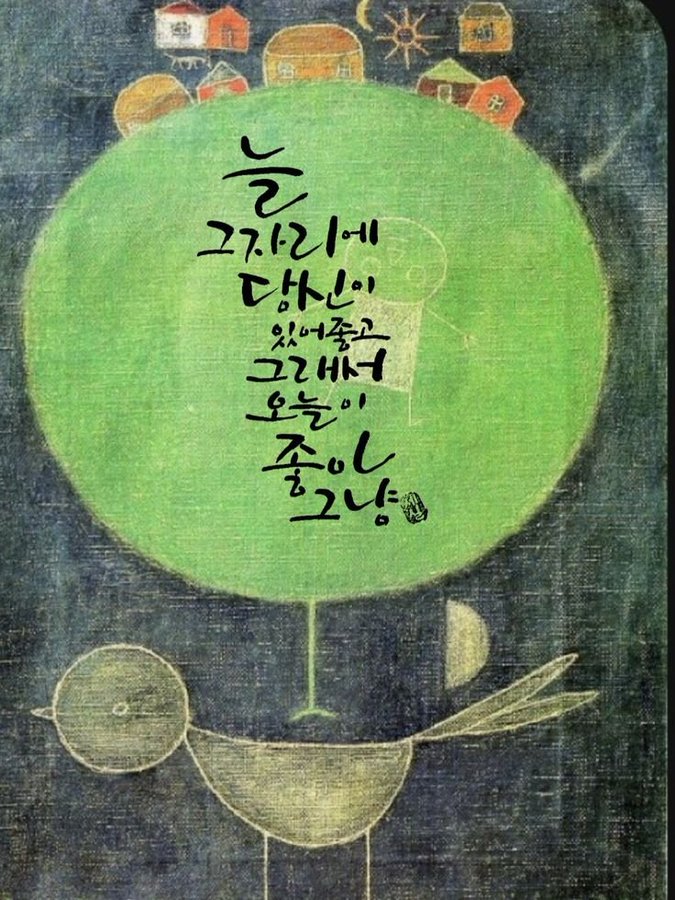 늘
그자리에
당신이
있어좋고
그래서
오늘이
좋아
그냥